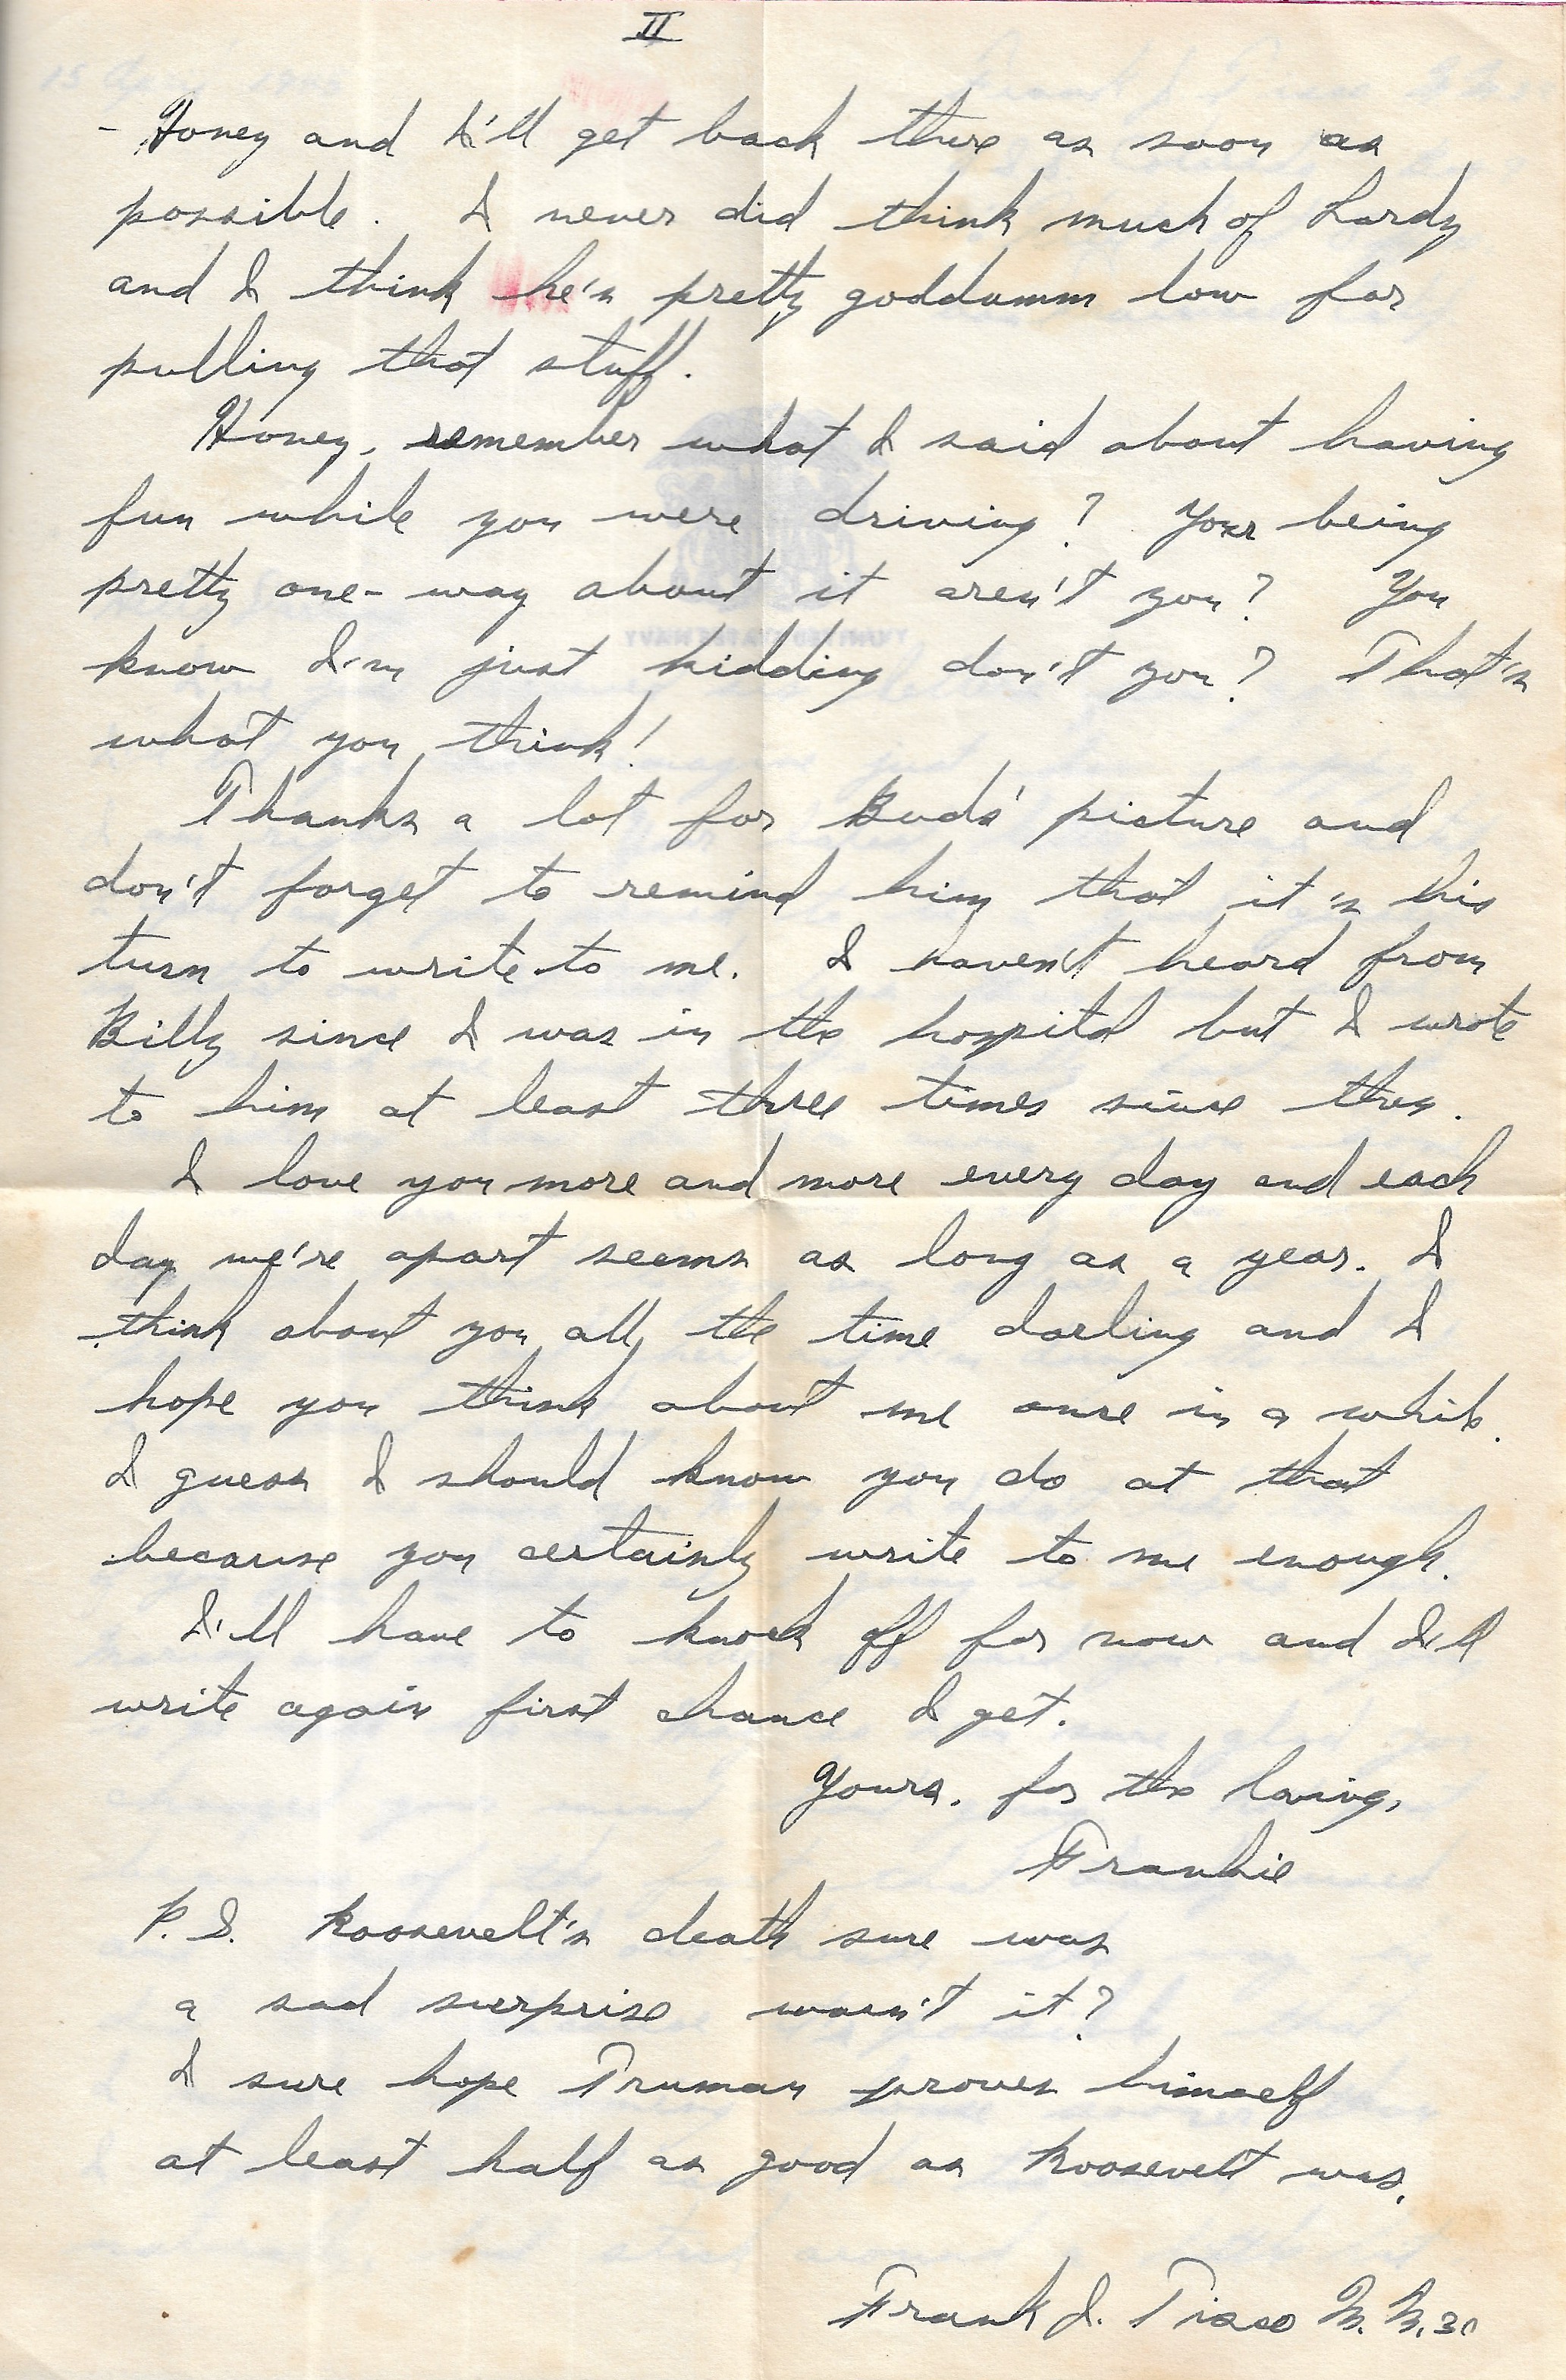 II
- Honey and I'll get back there as soon as
possible. I never did think much of Lardy
and I think he's pretty goddamm low for
pulling that stuff.
Honey, remember what I said about having
fun while you were driving? Your being
pretty one-way about it aren't you? You
know I'm just kidding don't you? That's
what you think!
Thanks a lot for Buds' picture and
don't forget to remind him that it's his
turn to write to me. I haven't heard from
Billy since I was in the hospital but I wrote
to him at least three times since then.
I love you more and more every day and each
day we're apart seems as long as a year. I
think about you all the time darling and I
hope you think about me once in a while.
I guess I should know you do at that
because you certainly write to me enough.
I'll have to knock off for now and I'll
write again first chance I get.
Yours, for the loving,
Frankie
P.S. Roosevelt's death sure was
a sad surprise wasn't it?
I sure hope Truman proves himself
at least half as good as Roosevelt was.
Frank J.